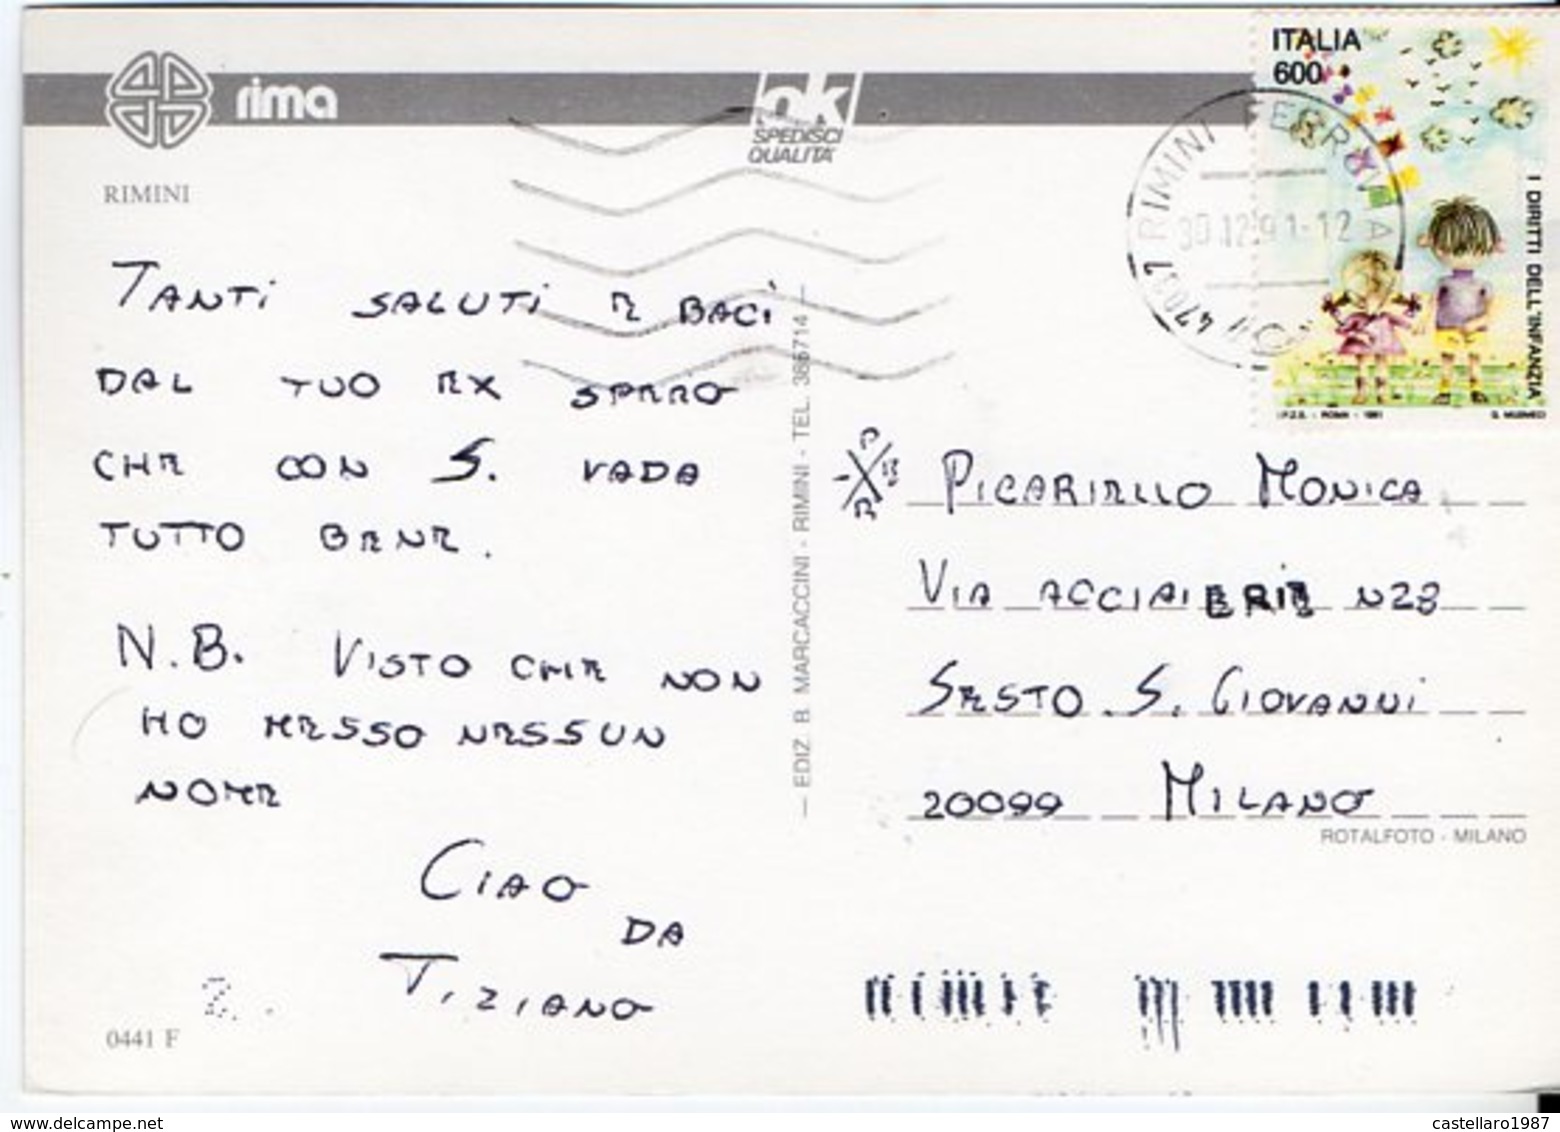 rima
ok
SPEDISCI
QUALITA'
RIMINI
ITALIA
600
I DIRITTI DELL'INFANZIA
I.P.Z.S. - ROMA - 1991
G. MUSMECI
47031 RIMINI FERROVIA
30.12.91-12
TANTI SALUTI E BACI
DAL TUO EX SPERO
CHE CON S. VADA
TUTTO BENE.
N.B. VISTO CHE NON
HO MESSO NESSUN
NOME
CIAO
DA
TIZIANO
0441 F
— EDIZ. B. MARCACCINI - RIMINI - TEL. 386714 —
PICARIELLO MONICA
VIA ACCIAIERIE N23
SESTO S. GIOVANNI
20099 MILANO
ROTALFOTO - MILANO
castellaro1987